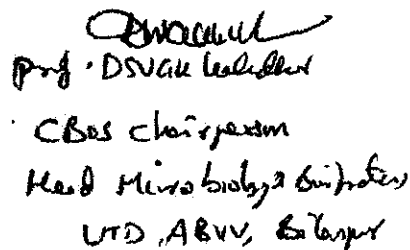 Prof. DSVGK Kaladhar
CBoS Chairperson
Head Microbiology & Bioinformatics,
UTD, ABVV, Bilaspur